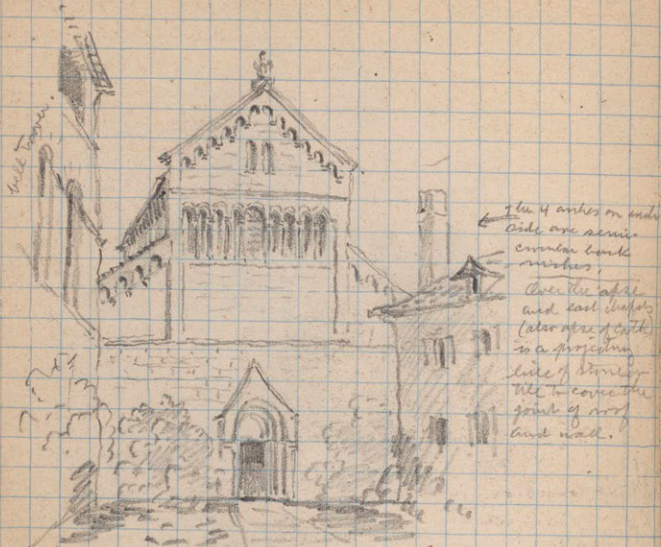 bell Tower.
The 4 arches on each
side are semi-
circular back
niches.
Over the apse
and east chapels
(also apse of cath.)
is a projecting
line of stone or
tile to cover the
joint of roof
and wall.